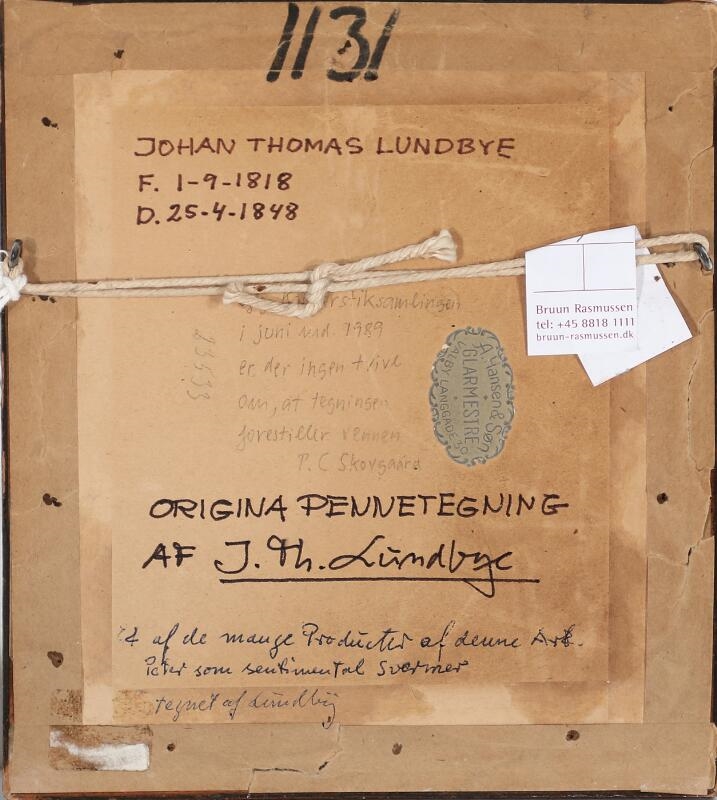 1131
JOHAN THOMAS LUNDBYE
F. 1-9-1818
D. 25-4-1848
Kobberstiksamlingen
i juni md. 1989
er der ingen tvivl
om, at tegningen
forestiller vennen
P. C Skovgaard
A. Hansen & Søn
GLARMESTRE
VALBY LANGGADE 30
Bruun Rasmussen
tel: +45 8818 1111
bruun-rasmussen.dk
ORIGINA PENNETEGNING
AF J. Th. Lundbye
af de mange Producter af denne Art.
Peter som sentimental Sværmer
tegnet af Lundby